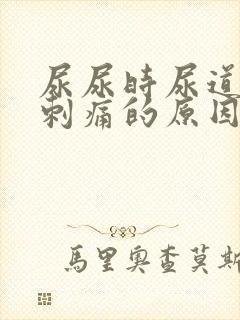 尿尿时尿道
刺痛的原因
馬里奧查莫斯